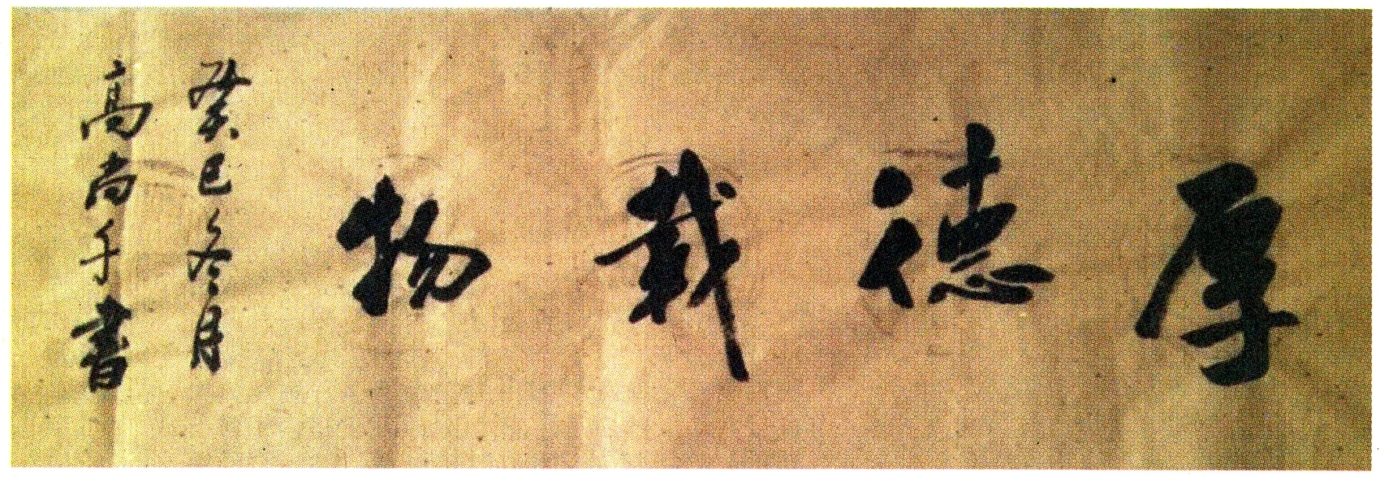 厚德載物
癸巳冬月
高尚千書